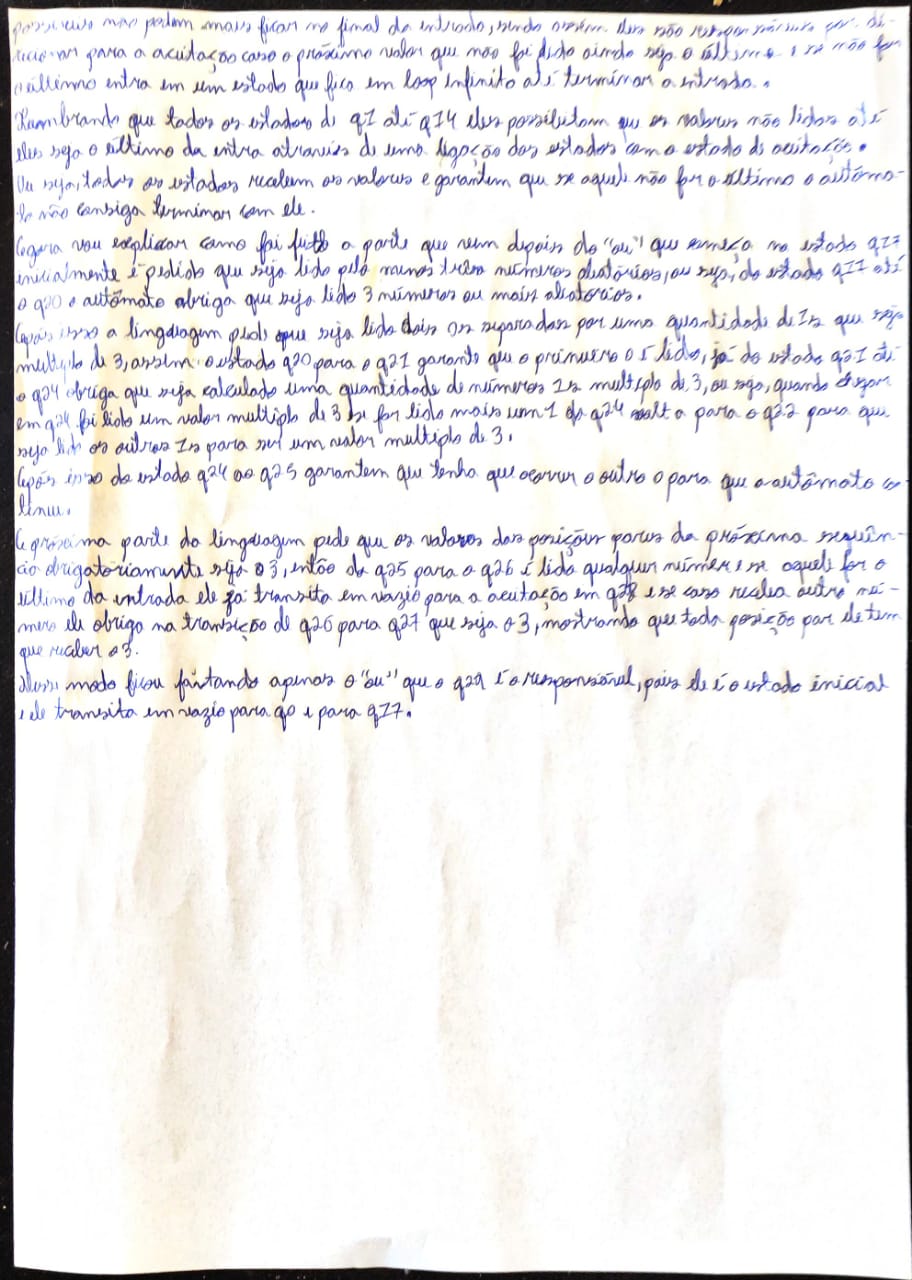 não podem mais ficar no final da entrada, sendo assim eles são responsáveis por di-
recionar para a aceitação caso o próximo valor que não foi lido ainda seja o último e se não for
o último entra em um estado que fica em loop infinito até terminar a entrada.
Lembrando que todos os estados de q1 até q14 eles possibilitam que os valores não lidos até
eles seja o último da entra através de uma ligação dos estados com o estado de aceitação.
Ou seja, todos os estados recebem os valores e garantem que se aquele não for o último o autôma-
to não consiga terminar com ele.
Agora vou explicar como foi feito a parte que vem depois do "ou" que começa no estado q17
inicialmente é pedido que seja lido pelo menos três números aleatórios, ou seja, do estado q17 até
o q20 o autômato obriga que seja lido 3 números ou mais aleatórios.
Após isso a linguagem pede que seja lido dois 0s separados por uma quantidade de 1s que seja
multiplo de 3, assim o estado q20 para o q21 garante que o primeiro 0 é lido, já do estado q21 até
o q24 obriga que seja calculado uma quantidade de números 1s multiplo de 3, ou seja, quando chegar
em q24 foi lido um valor multiplo de 3 se for lido mais um 1 do q24 volta para o q22 para que
seja lido os outros 1s para ser um valor multiplo de 3.
Após isso do estado q24 ao q25 garantem que tenha que ocorrer o outro 0 para que o autômato con-
tinue.
A próxima parte da linguagem pede que os valores das posições pares da próxima sequên-
cia obrigatoriamente seja o 3, então do q25 para o q26 é lido qualquer número e se aquele for o
último da entrada ele já transita em vazio para a aceitação em q28 e se caso receba outro nú-
mero ele obriga na transição de q26 para q27 que seja o 3, mostrando que toda posição par ele tem
que receber o 3.
Desse modo ficou faltando apenas o "ou" que o q29 é o responsável, pois ele é o estado inicial
e ele transita em vazio para q0 e para q17.